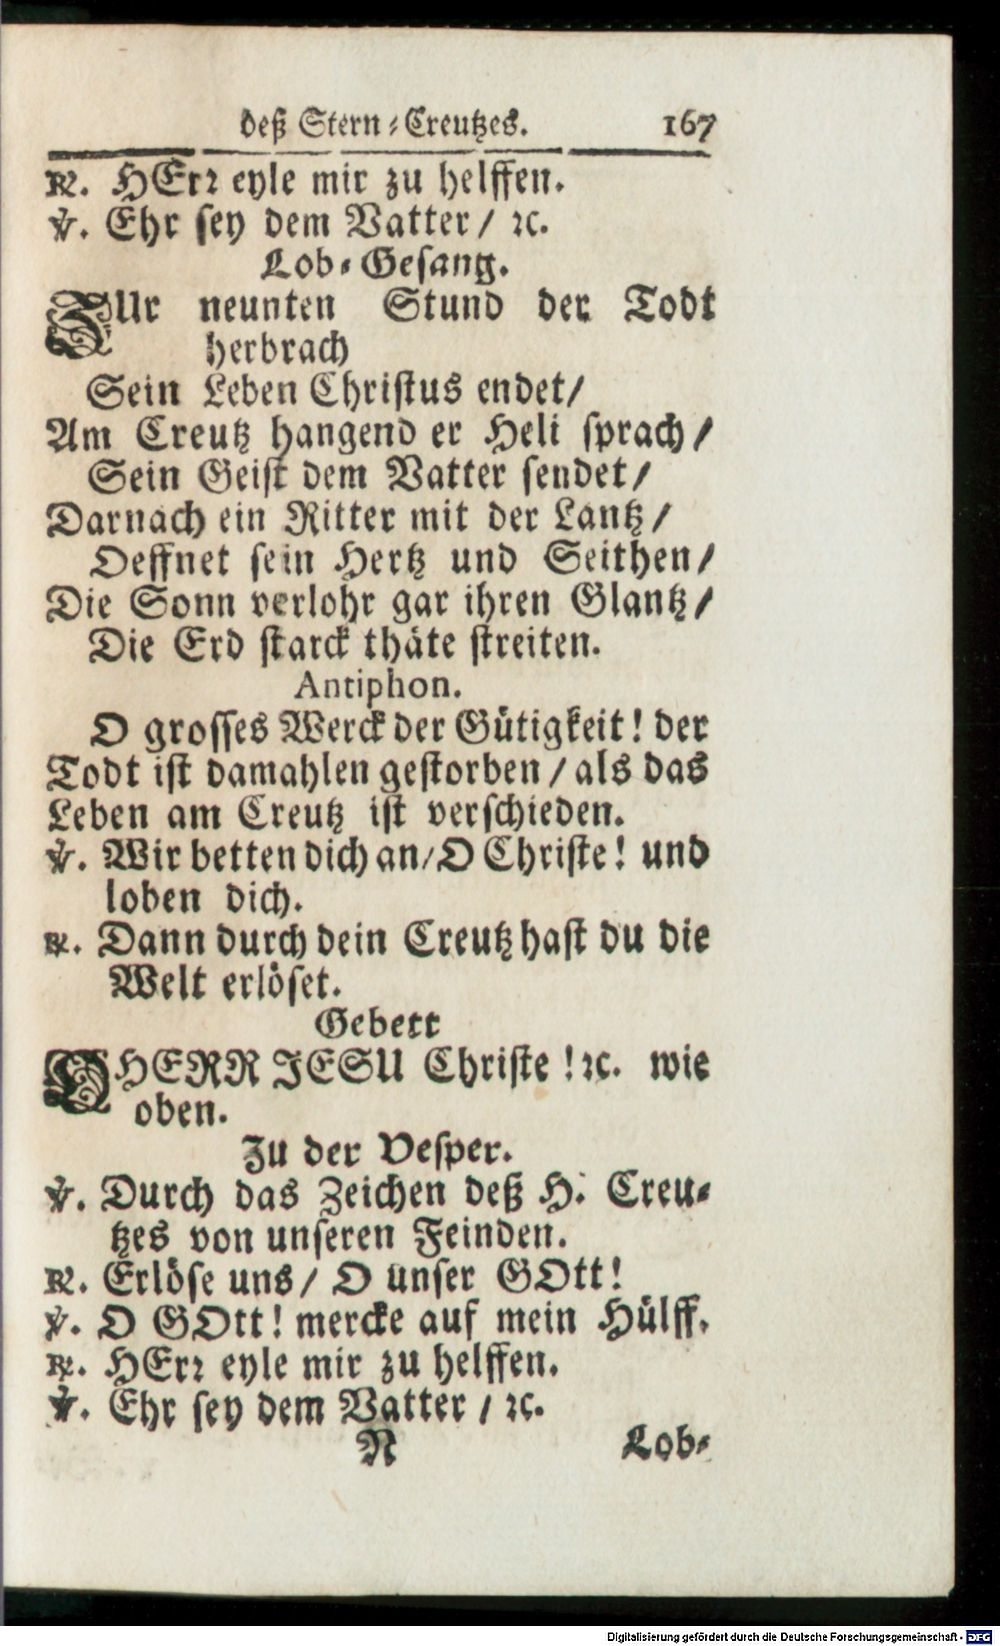 deß Stern-Creutzes. 167
℟. HErꝛ eyle mir zu helffen.
℣. Ehr sey dem Vatter / ꝛc.
Lob-Gesang.
ZUr neunten Stund der Todt
herbrach
Sein Leben Christus endet/
Am Creutz hangend er Heli sprach/
Sein Geist dem Vatter sendet/
Darnach ein Ritter mit der Lantz/
Oeffnet sein Hertz und Seithen/
Die Sonn verlohr gar ihren Glantz/
Die Erd starck thäte streiten.
Antiphon.
O grosses Werck der Gütigkeit! der
Todt ist damahlen gestorben / als das
Leben am Creutz ist verschieden.
℣. Wir betten dich an/O Christe! und
loben dich.
℟. Dann durch dein Creutz hast du die
Welt erlöset.
Gebett
O HERR JESU Christe !ꝛc. wie
oben.
Zu der Vesper.
℣. Durch das Zeichen deß H. Creu-
tzes von unseren Feinden.
℟. Erlöse uns/ O unser GOtt!
℣. O GOtt! mercke auf mein Hülff.
℟. HErꝛ eyle mir zu helffen.
℣. Ehr sey dem Vatter / ꝛc.
N Lob-
Digitalisierung gefördert durch die Deutsche Forschungsgemeinschaft - DFG